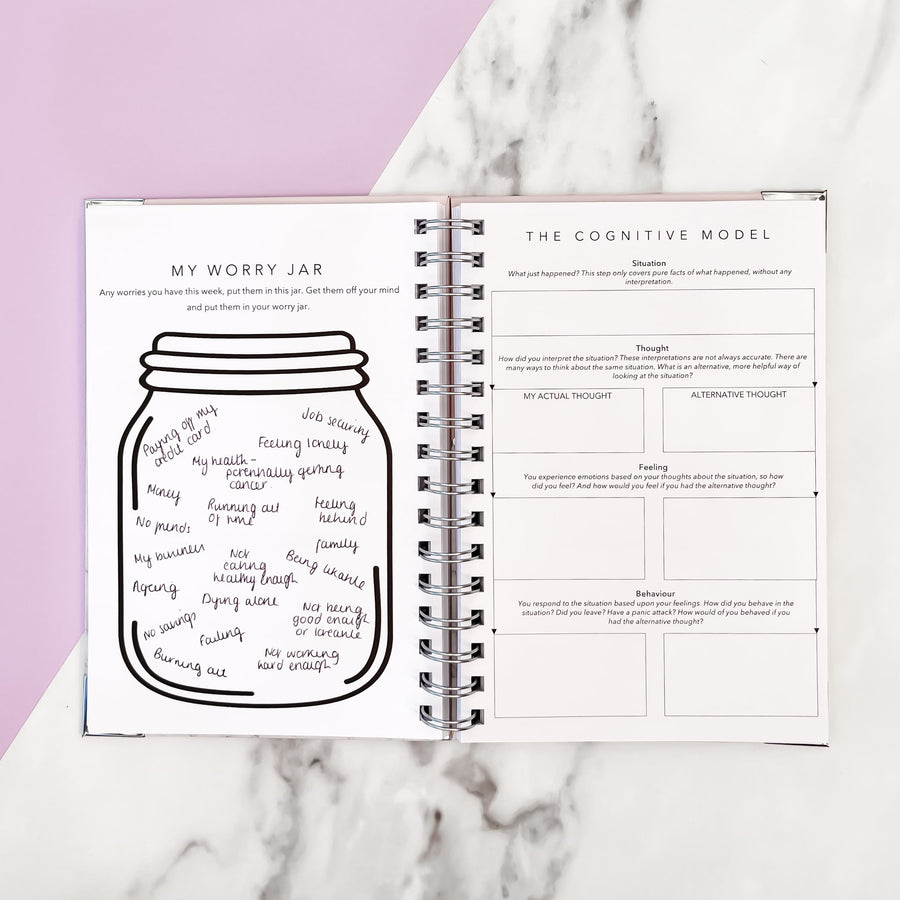 MY WORRY JAR
Any worries you have this week, put them in this jar. Get them off your mind
and put them in your worry jar.
Paying off my
credit card
Job security
Feeling lonely
My health -
potentially getting
cancer.
Money
Running out
of time
Feeling
behind
No friends
My business
Not
eating
healthy enough
family
Being likable
Ageing
Dying alone
Not being
good enough
or loveable
No savings
Failing
Burning out
Not working
hard enough
THE COGNITIVE MODEL
Situation
What just happened? This step only covers pure facts of what happened, without any
interpretation.
Thought
How did you interpret the situation? These interpretations are not always accurate. There are
many ways to think about the same situation. What is an alternative, more helpful way of
looking at the situation?
MY ACTUAL THOUGHT
ALTERNATIVE THOUGHT
Feeling
You experience emotions based on your thoughts about the situation, so how
did you feel? And how would you feel if you had the alternative thought?
Behaviour
You respond to the situation based upon your feelings. How did you behave in the
situation? Did you leave? Have a panic attack? How would of you behaved if you
had the alternative thought?